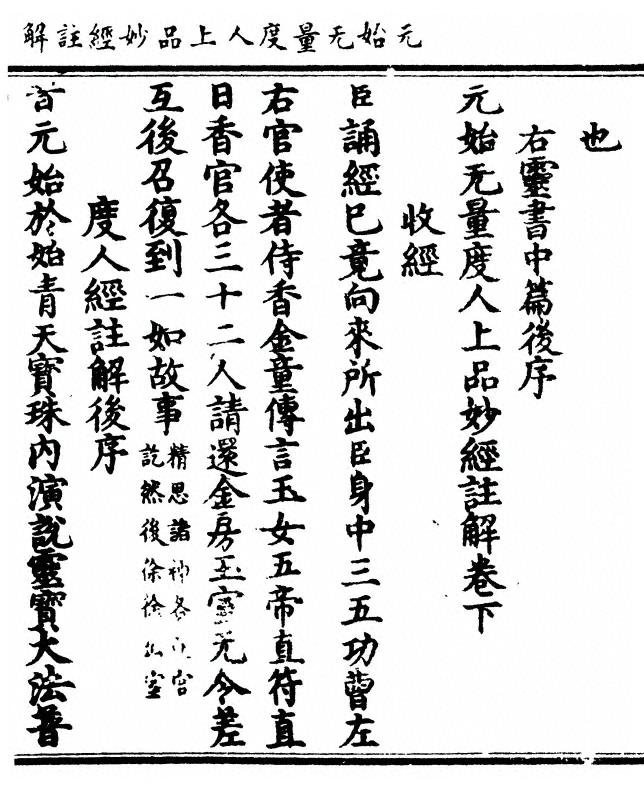 元始无量度人上品妙經註解
也
右靈書中篇後序
元始无量度人上品妙經註解卷下
收經
臣誦經已竟向來所出臣身中三五功曹左
右官使者侍香金童傳言玉女五帝直符直
日香官各三十二人請還金房玉室无令差
互後召復到一如故事
精思諸神各宮
訖然後徐徐出室
度人經註解後序
昔元始於始青天寶珠內演說靈寶大法普